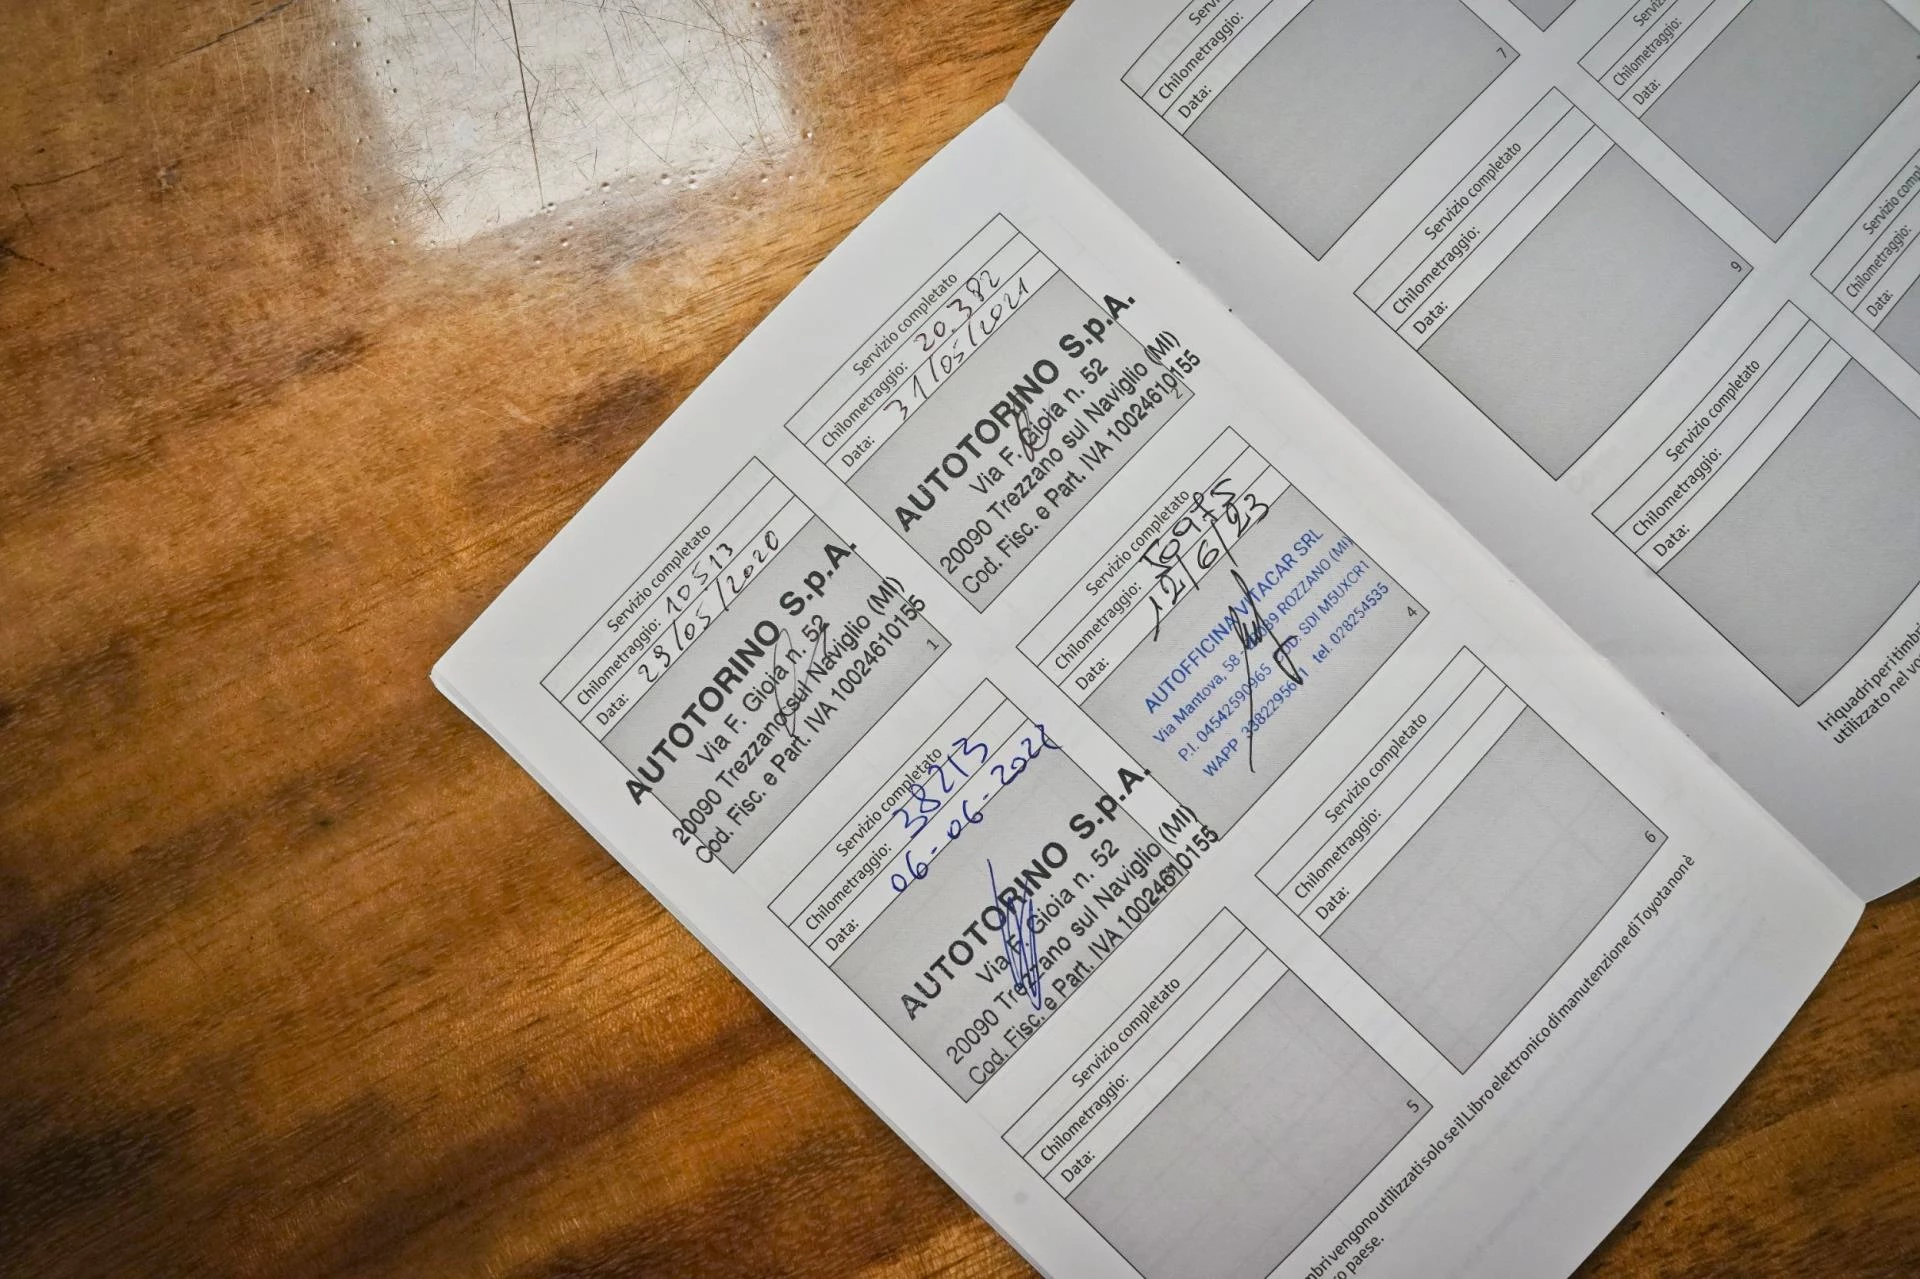 Servizio completato
Chilometraggio: 10513
Data: 29/05/2020
AUTOTORINO S.p.A.
Via F. Gioia n. 52
20090 Trezzano sul Naviglio (MI)
Cod. Fisc. e Part. IVA 10024610155
1
Servizio completato
Chilometraggio: 20.382
Data: 31/05/2021
AUTOTORINO S.p.A.
Via F. Gioia n. 52
20090 Trezzano sul Naviglio (MI)
Cod. Fisc. e Part. IVA 10024610155
2
Servizio completato
Chilometraggio: 38213
Data: 06-06-2022
AUTOTORINO S.p.A.
Via F. Gioia n. 52
20090 Trezzano sul Naviglio (MI)
Cod. Fisc. e Part. IVA 10024610155
Servizio completato
Chilometraggio: 50975
Data: 12/6/23
AUTOFFICINA VITACAR SRL
Via Mantova, 58 - ROZZANO (MI)
P.I. 04542590965 COD. SDI M5UXCR1
WAPP tel. 028254535
4
Servizio completato
Chilometraggio:
Data:
5
Servizio completato
Chilometraggio:
Data:
6
vengono utilizzati solo se il Libro elettronico di manutenzione di Toyota non è
paese.
Chilometraggio:
Data:
7
Chilometraggio:
Data:
Servizio completato
Chilometraggio:
Data:
9
Servizio
Chilometraggio:
Data:
Servizio completato
Chilometraggio:
Data:
I riquadri per i
utilizzato nel